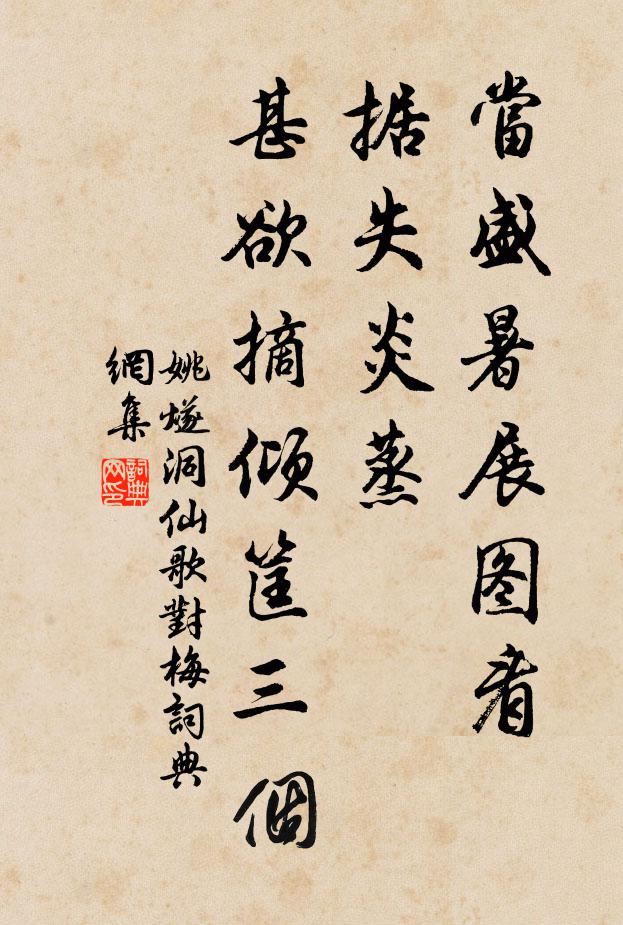 當盛暑展图看
据失炎蒸
甚欲摘傾筐三個
姚燧洞仙歌對梅詞典
網集
詞典
网印